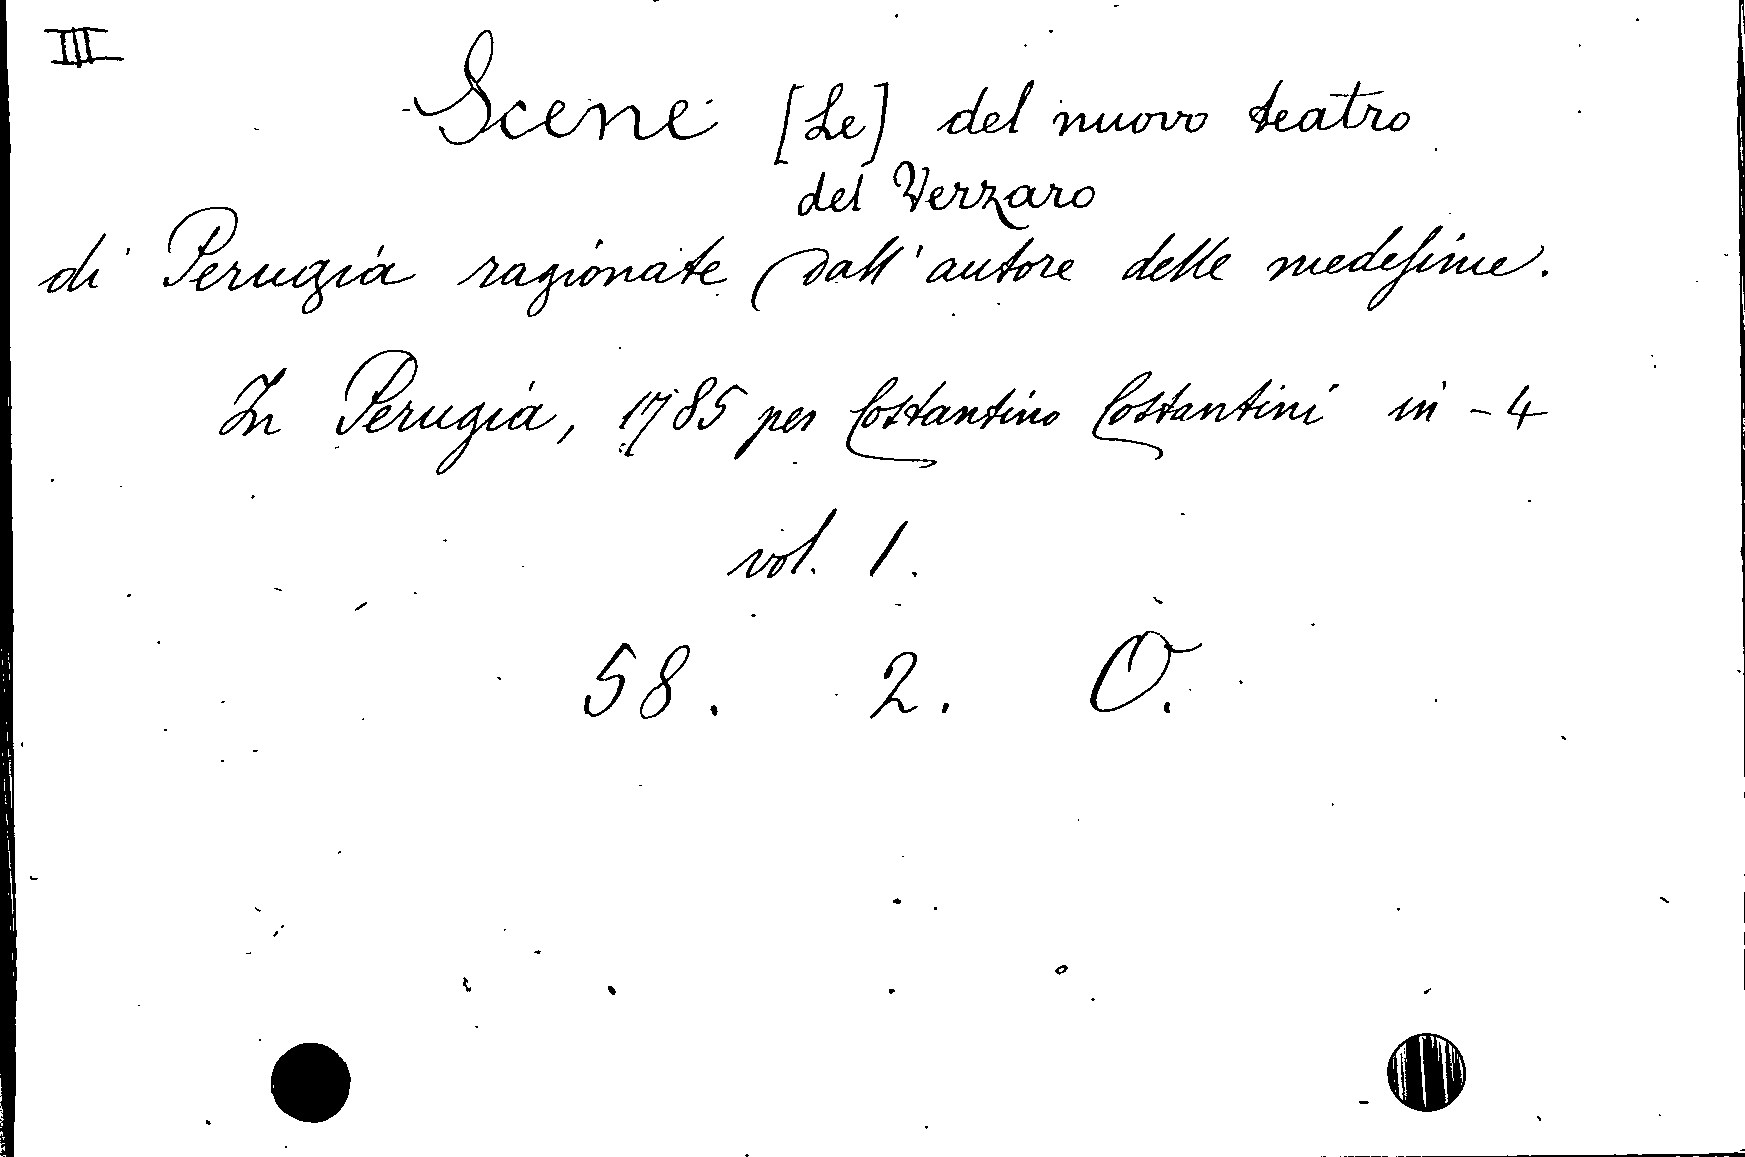 III
Scene [Le] del nuovo teatro
del Verzaro
di Perugia ragionate dall'autore delle medesime.
In Perugia, 1785 per Costantino Costantini in-4
vol. 1.
58. 2. O.